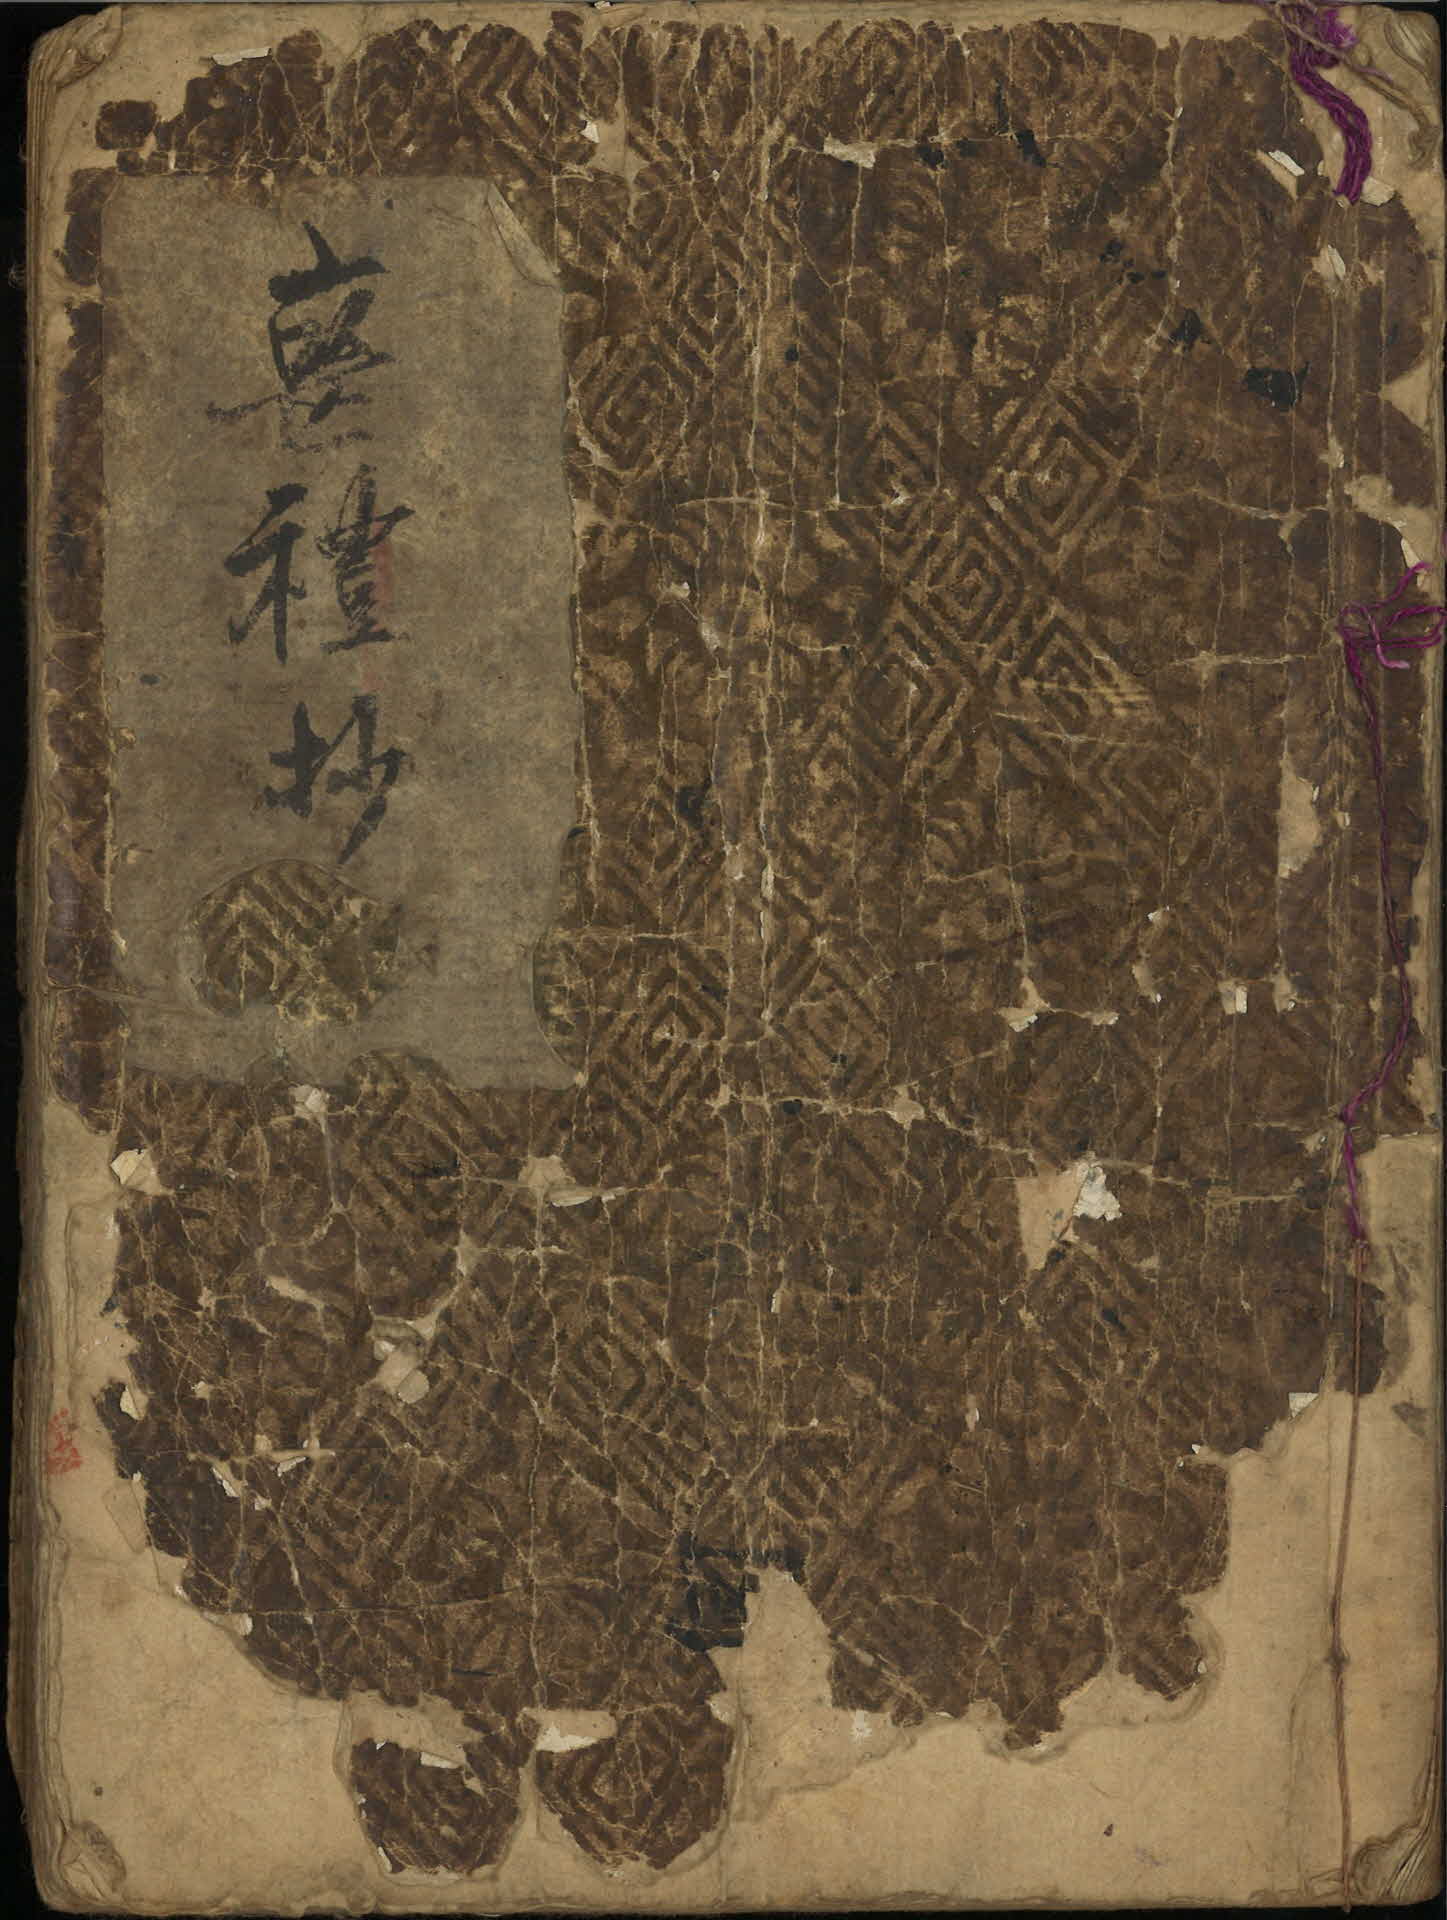 喪禮抄